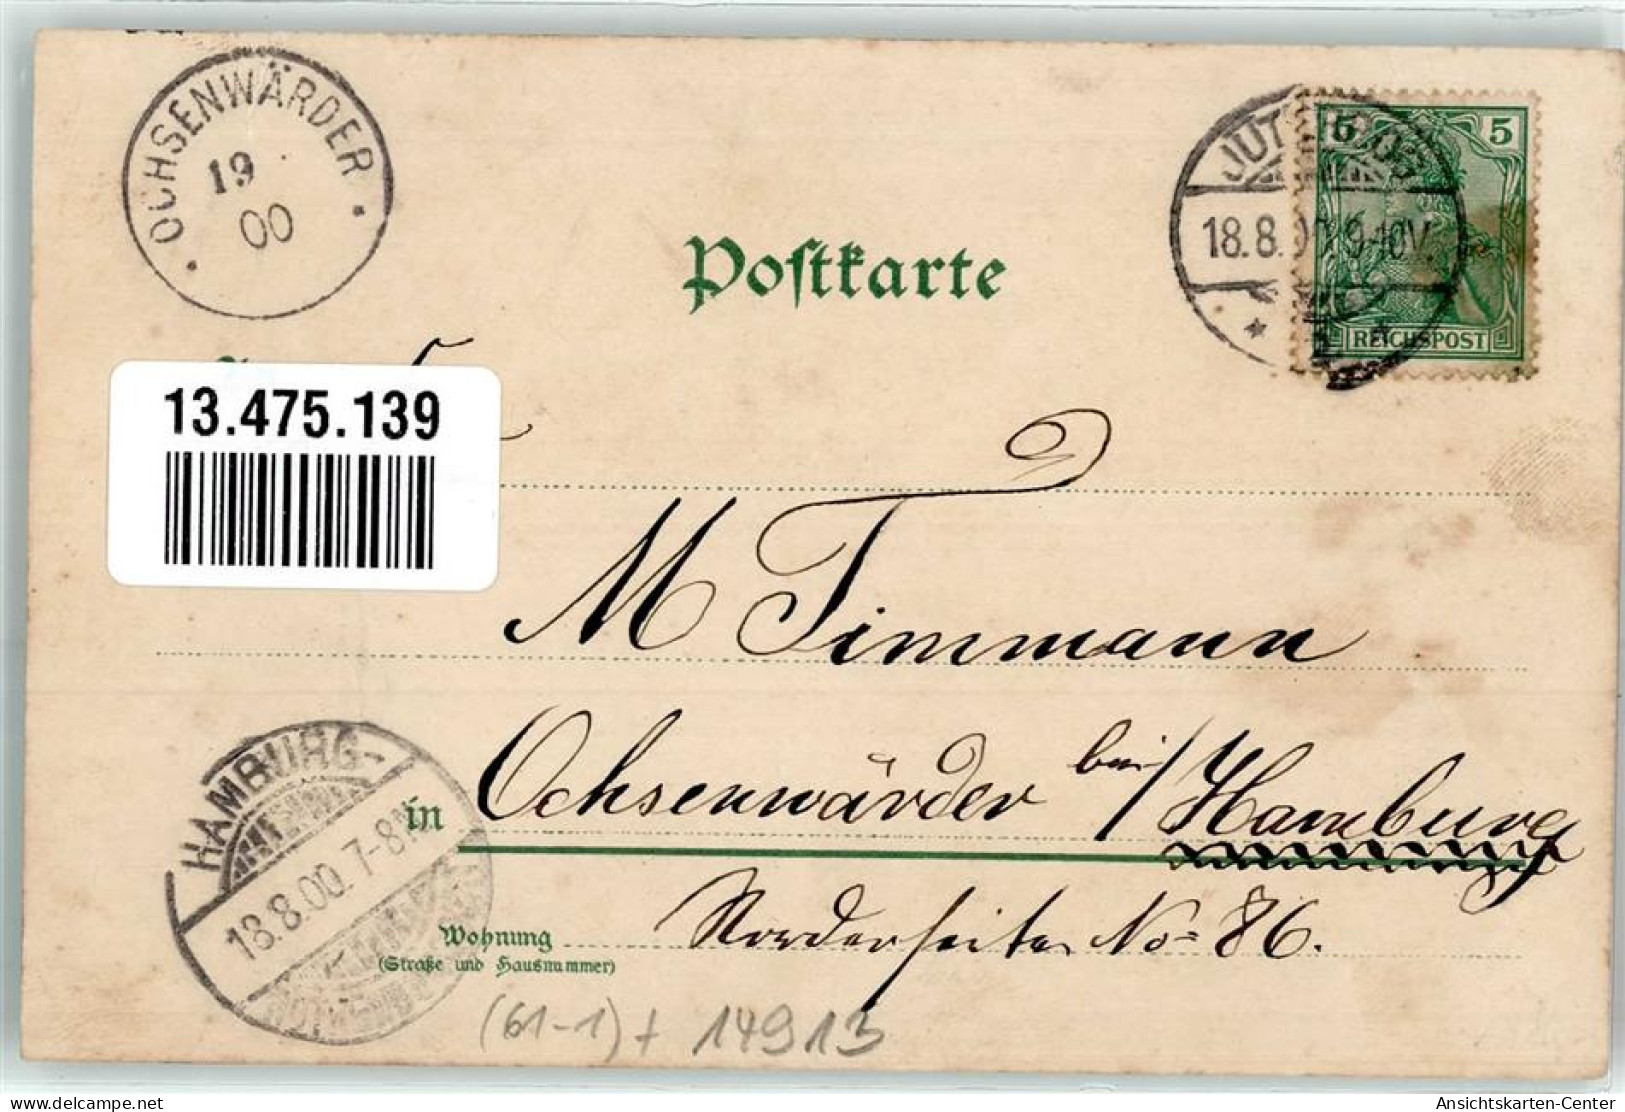 OCHSENWÄRDER
19
00
Postkarte
5 5
REICHSPOST
18.8.00.9-10V.
13.475.139
M Timmann
in Ochsenwärder bei/Hamburg
HAMBURG-
18.8.00.7-8N
Wohnung Norderseite No 86.
(Straße und Hausnummer)
(61-1) + 14913
delcampe.net
Ansichtskarten-Center